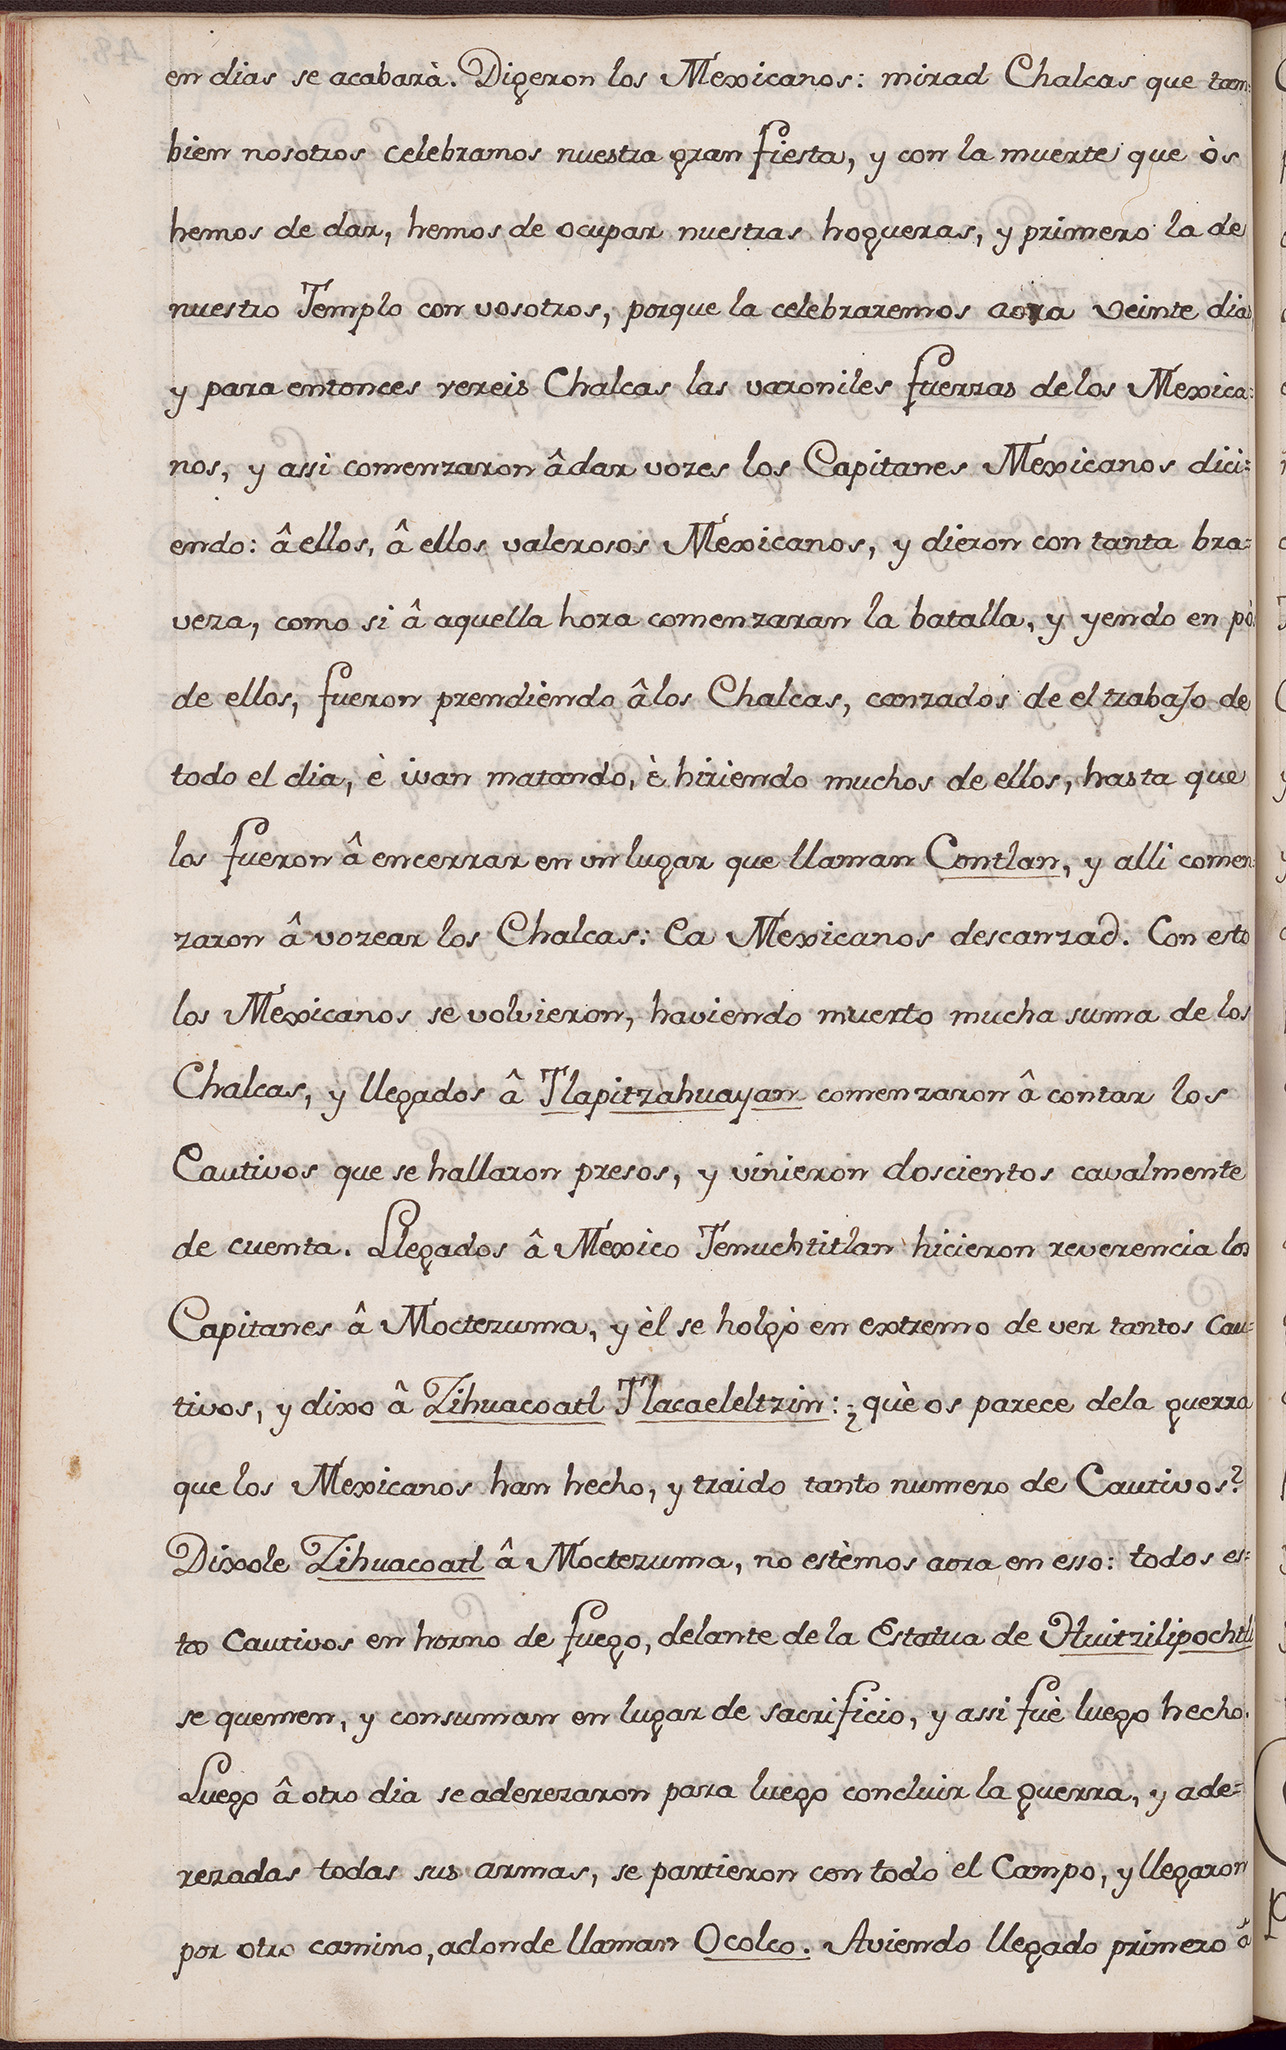 en dias se acabarà. Digeron los Mexicanos: mirad Chalcas que tam:
bien nosotros celebramos nuestra gran fiesta, y con la muerte que òs
hemos de dar, hemos de ocupar nuestras hogueras, y primero la de
nuestro Templo con vosotros, porque la celebraremos aora veinte dias
y para entonces vereis Chalcas las varoniles fuerzas de los Mexica:
nos, y assi comenzaron â dar vozes los Capitanes Mexicanos dici=
endo: â ellos, â ellos valerosos Mexicanos, y dieron con tanta bra=
veza, como si â aquella hora comenzaran la batalla, y yendo en pòs
de ellos, fueron prendiendo â los Chalcas, canzados de el trabajo de
todo el dia, è ivan matando, è hiriendo muchos de ellos, hasta que
los fueron â encerrar en un lugar que llaman Contlan, y alli comen:
zaron â vozear los Chalcas: Ea Mexicanos descanzad. Con esto
los Mexicanos se volvieron, haviendo muerto mucha suma de los
Chalcas, y llegados â Tlapitzahuayan comenzaron â contar los
Cautivos que se hallaron presos, y vinieron doscientos cavalmente
de cuenta. Llegados â Mexico Tenuchtitlan hicieron reverencia los
Capitanes â Moctezuma, y èl se holgò en extremo de ver tantos Cau=
tivos, y dixo â Zihuacoatl Tlacaeleltzin: ¿què os parece dela guerra
que los Mexicanos han hecho, y traido tanto numero de Cautivos?
Dixole Zihuacoatl â Moctezuma, no estèmos aora en esso: todos es=
tos Cautivos en horno de fuego, delante de la Estatua de Huitzilipochtli
se quemen, y consuman en lugar de sacrificio, y assi fuè luego hecho.
Luego â otro dia se aderezaron para luego concluir la guerra, y ade=
rezadas todas sus armas, se partieron con todo el Campo, y llegaron
por otro camino, adonde llaman Ocolco. Aviendo llegado primero â